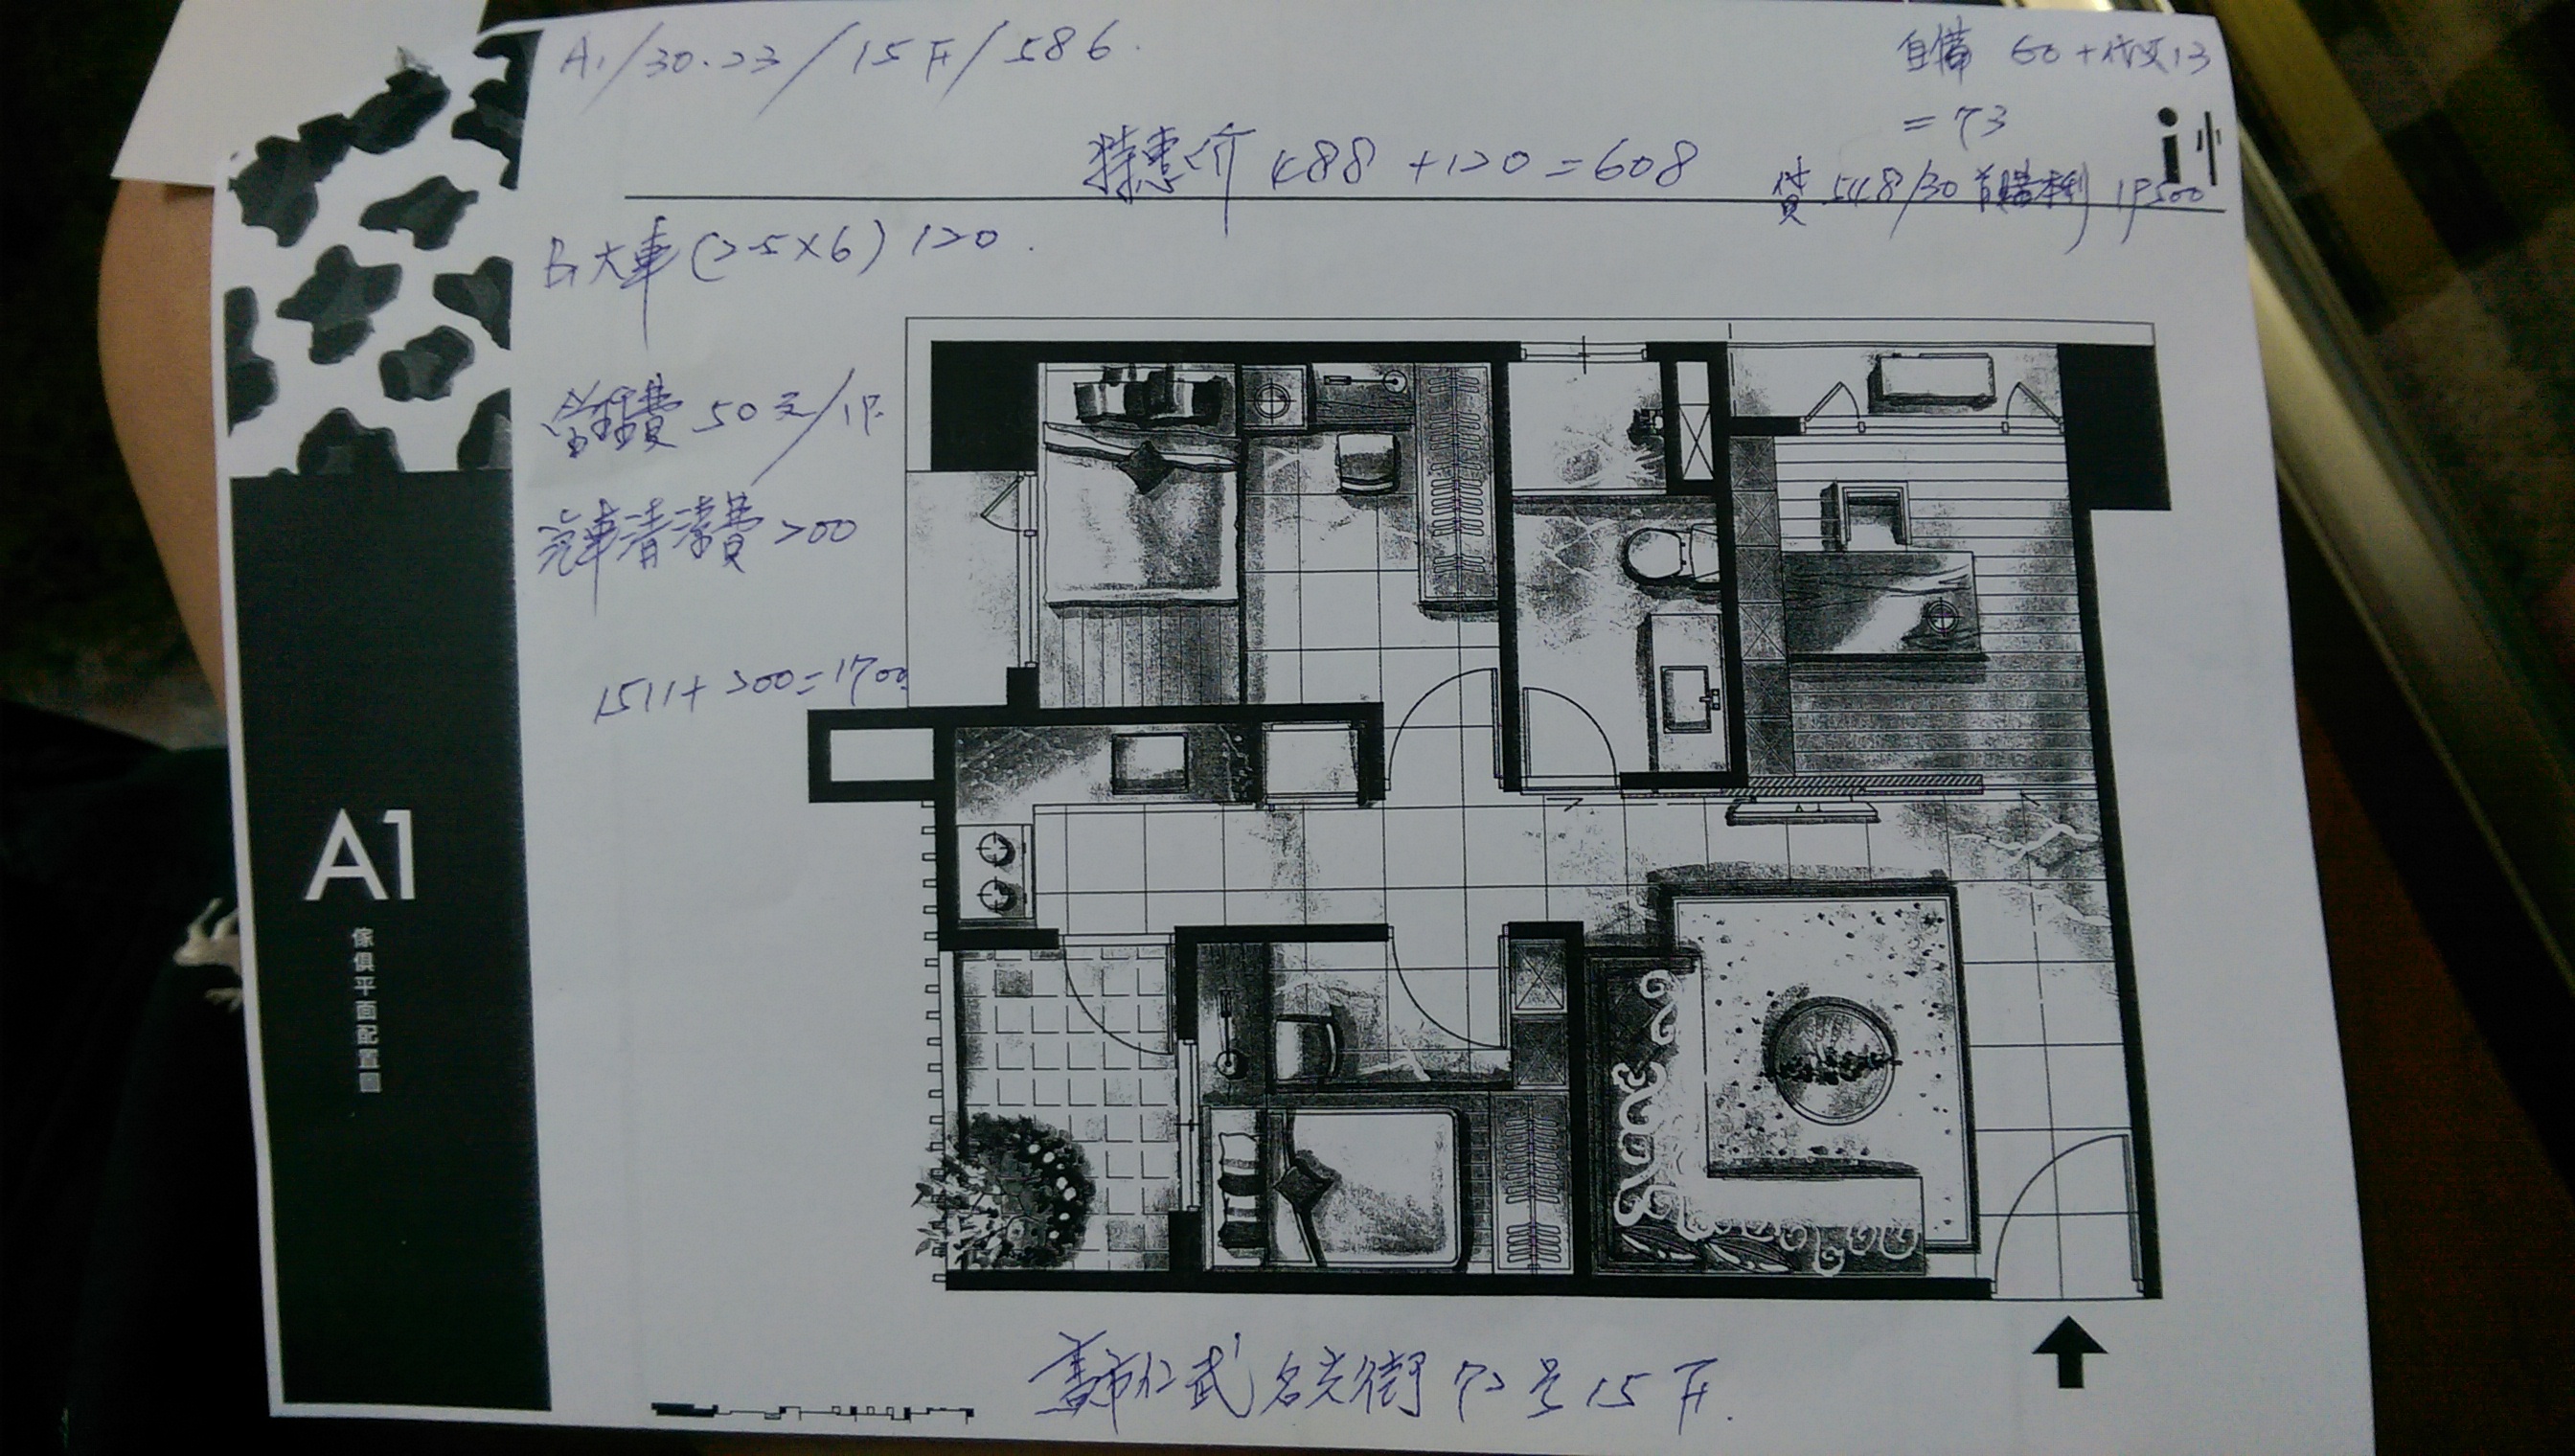 A1/30.23/15F/586.
自備 60+代支13
=73
特惠价 488+120=608
貸 548/30 首購本利 19500
B1大車(2.5×6) 120.
管理費 50元/坪
汽車清潔費 200
1511+200=1700
A1
傢俱平面配置圖
高市仁武名光街 72号 15F.